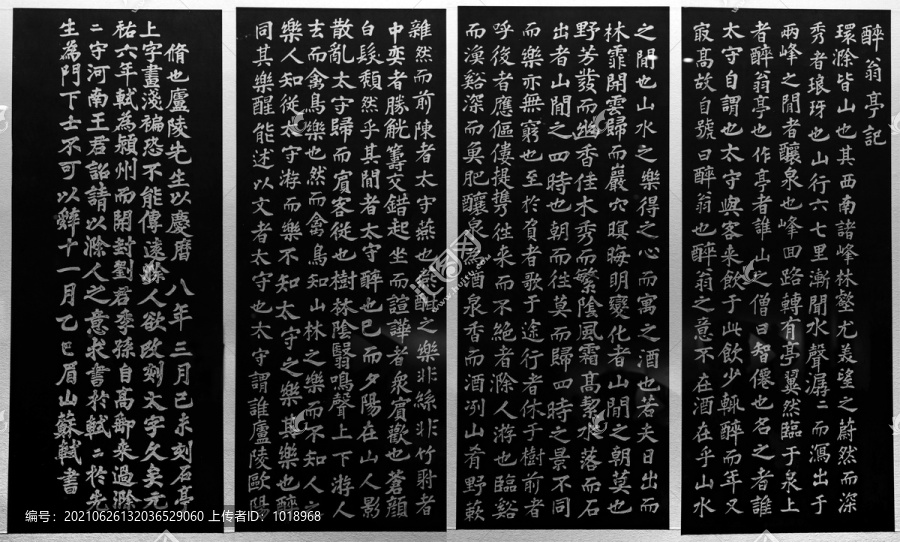 醉翁亭記
環滁皆山也其西南諸峰林壑尤美望之蔚然而深
秀者琅玡也山行六七里漸聞水聲潺〻而瀉出于
兩峰之間者釀泉也峰回路轉有亭翼然臨于泉上
者醉翁亭也作亭者誰山之僧曰智僊也名之者誰
太守自謂也太守與客來飲于此飲少輒醉而年又
㝡高故自號曰醉翁也醉翁之意不在酒在乎山水
之間也山水之樂得之心而寓之酒也若夫日出而
林霏開雲歸而巖穴暝晦明變化者山間之朝莫也
野芳發而幽香佳木秀而繁陰風霜高絜水落而石
出者山間之四時也朝而往莫而歸四時之景不同
而樂亦無窮也至於負者歌于途行者休于樹前者
呼後者應傴僂提攜往來而不絕者滁人游也臨谿
而漁谿深而魚肥釀泉爲酒泉香而酒洌山肴野蔌
雜然而前陳者太守燕也燕酣之樂非絲非竹射者
中奕者勝觥籌交錯起坐而諠譁者衆賓歡也蒼顏
白髮頹然乎其間者太守醉也已而夕陽在山人影
散亂太守歸而賓客從也樹林陰翳鳴聲上下游人
去而禽鳥樂也然而禽鳥知山林之樂而不知人之
樂人知從太守游而樂不知太守之樂其樂也醉
同其樂醒能述以文者太守也太守謂誰廬陵歐陽
脩也廬陵先生以慶曆八年三月己未刻石亭
上字畫淺褊恐不能傳遠滁人欲改刻大字久矣元
祐六年軾爲潁州而開封劉君季孫自高郵來過滁
〻守河南王君詔請以滁人之意求書於軾〻於先
生爲門下士不可以辭十一月乙巳眉山蘇軾書
編号：20210626132036529060 上传者ID：1018968